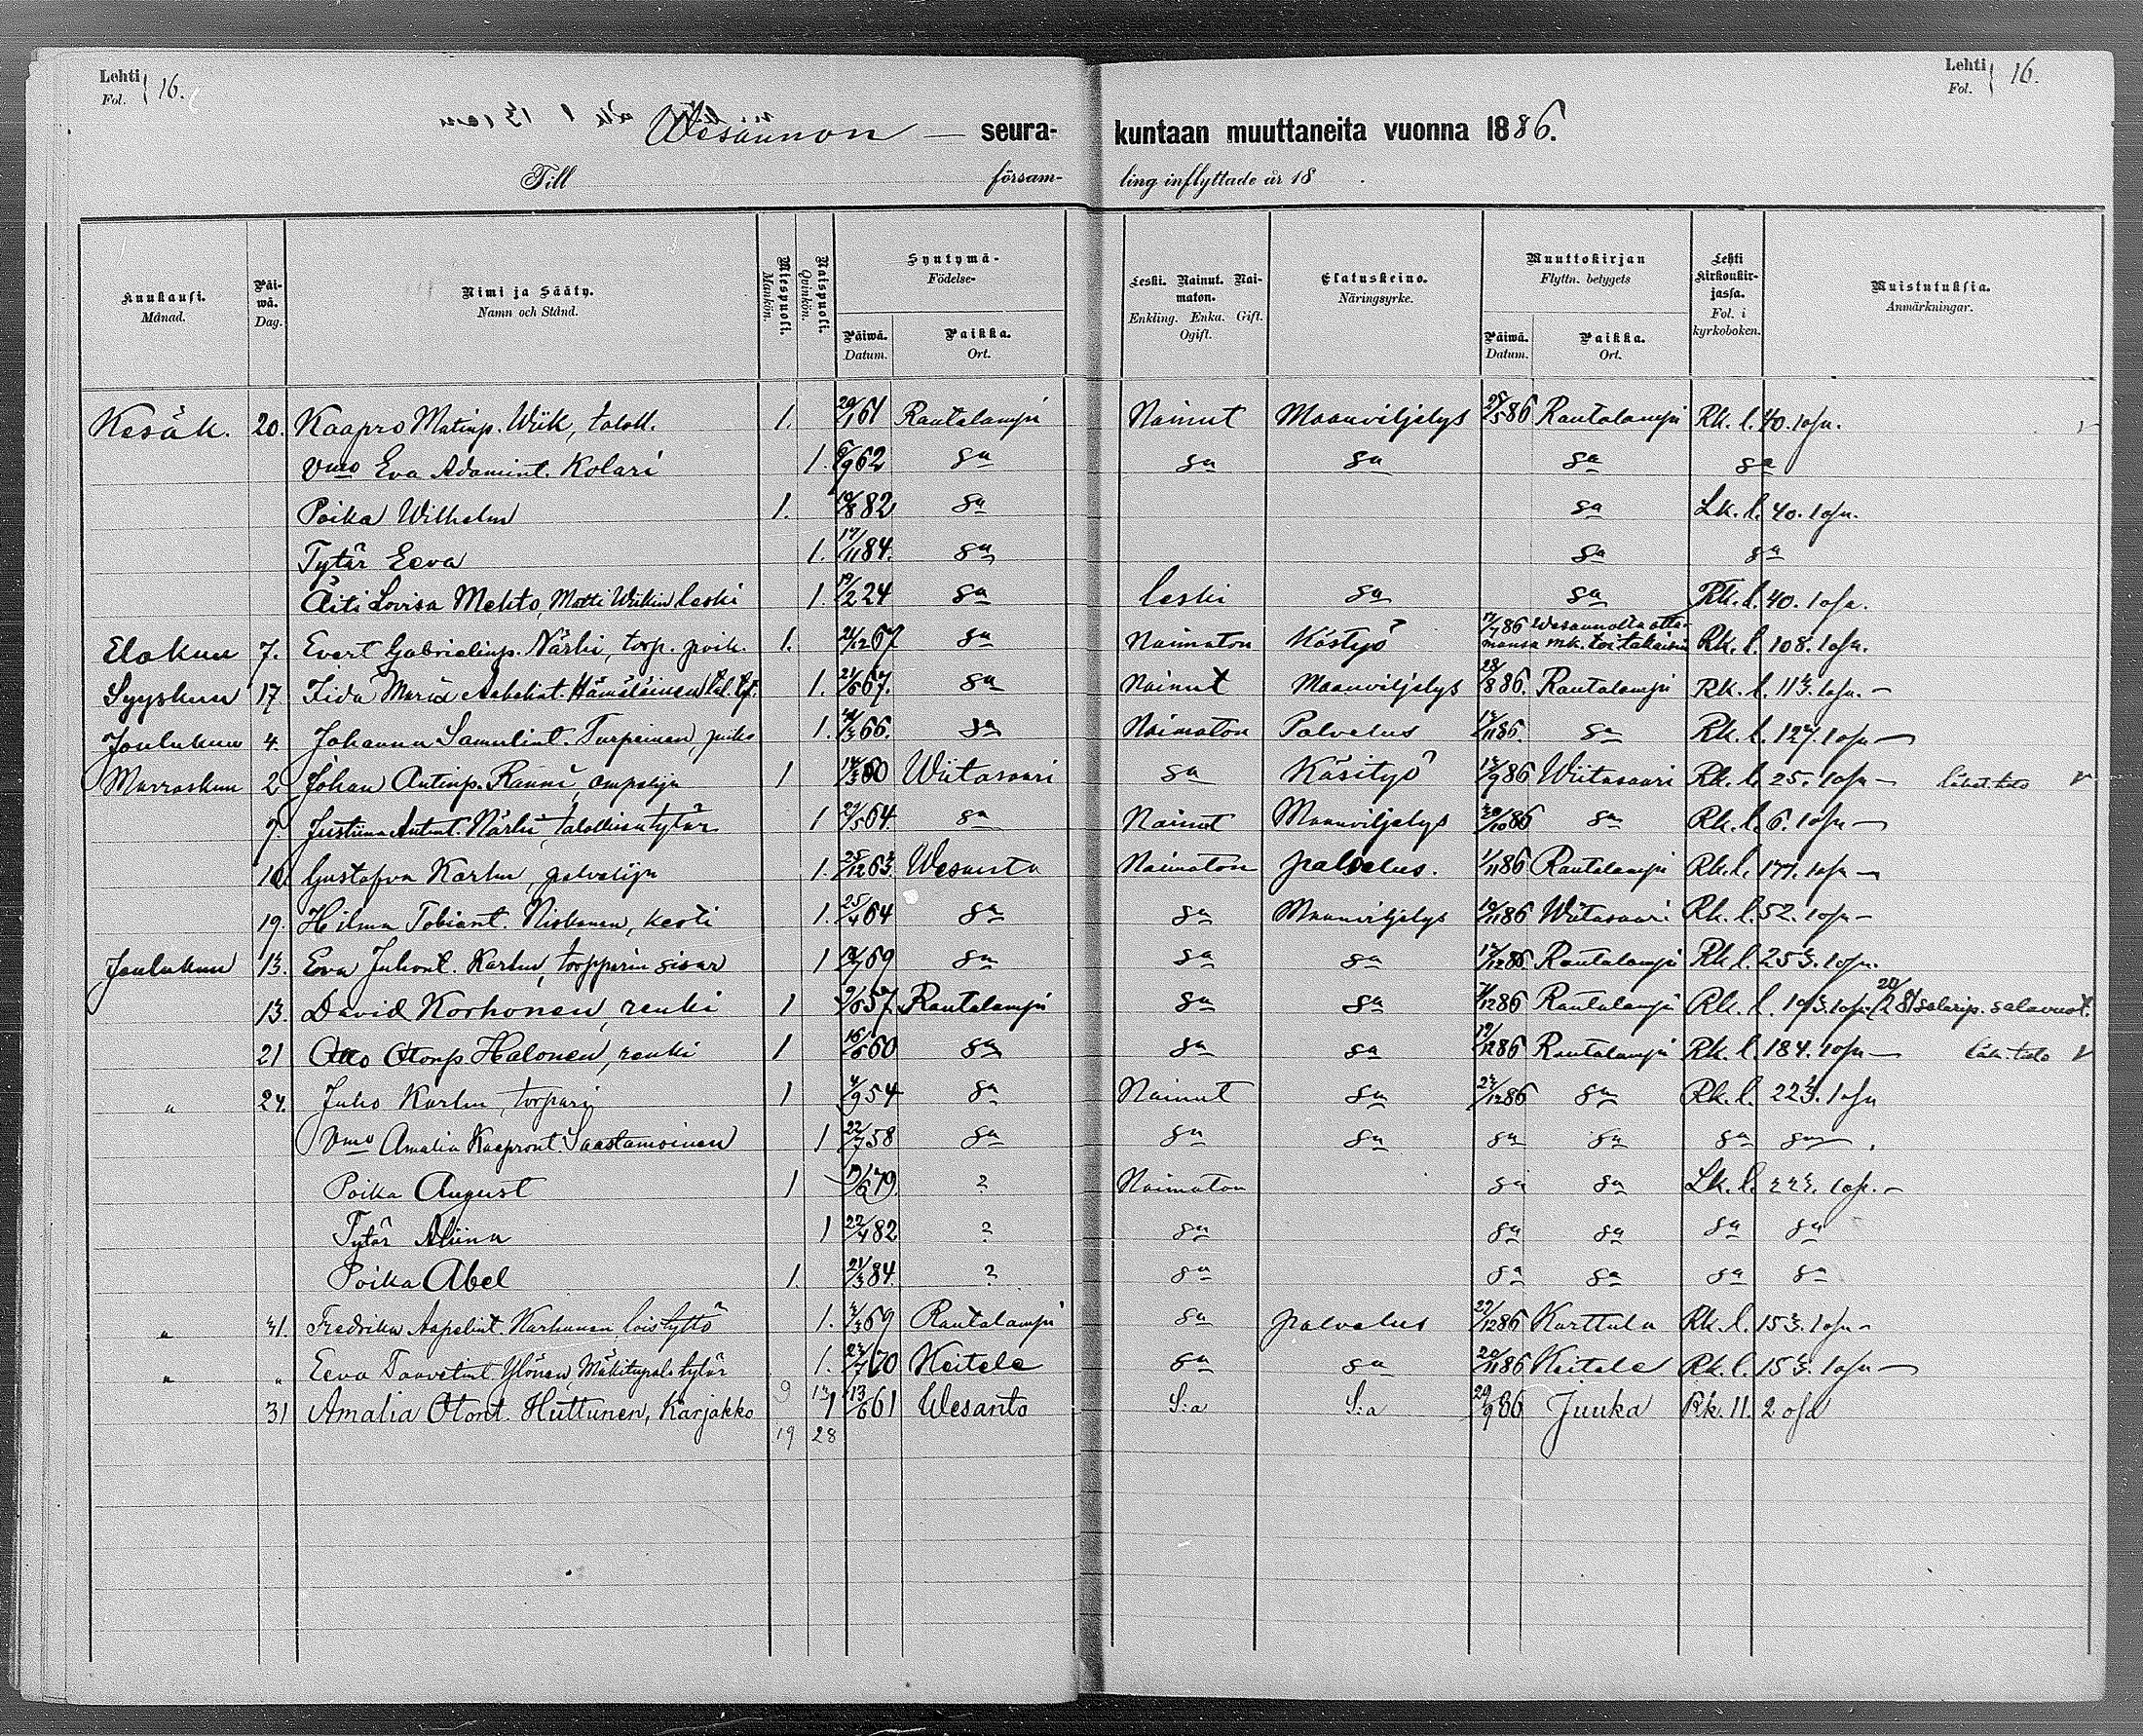 Lehti Fol. 16.
Lehti Fol. 16.
Wesannon — seura- kuntaan muuttaneita vuonna 1886.
Till församling inflyttade år 18 .
Kuukausi. Månad.
Päiwä. Dag.
Nimi ja Sääty. Namn och Stånd.
Miespuoli. Mankön.
Naispuoli. Qvinkön.
Syntymä- Födelse-
Päiwä. Datum.
Paikka. Ort.
Leski. Nainut. Naimaton. Enkling. Enka. Gift. Ogift.
Elatuskeino. Näringsyrke.
Muuttokirjan Flyttn. betygets
Päiwä. Datum.
Paikka. Ort.
Lehti kirkonkirjassa. Fol. i kyrkoboken.
Muistutuksia. Anmärkningar.
Kesäk. 20. Kaapro Matinp. Wiik, taloll. 1. 61 Rautalampi Nainut Maanviljelys 86 Rautalampi Rk. l. 40. 1 osa.
Vmo Eva Adamint. Kolari 1. 9 62 sa sa sa sa sa
Poika Wilhelm 1. 82 sa sa Lk. l. 40. 1 osa.
Tytär Eeva 1. 17/11 84. sa sa sa
Äiti Lovisa Mehto, Matti Wiikin leski 1. 19/2 24 sa leski sa sa Rk. l. 40. 1 osa.
Elokuu 7. Evert Gabrielinp. Närhi, torp. poik. 1. 12 67 sa Naimaton Kästyö 17/7 86 Wesannolta ottamansa mk. toi takaisin Rk. l. 108. 1 osa.
Syyskuu 17. Iida Maria Aabelint. Hämäläinen tal. tyt. 1. 67. sa Nainut Maanviljelys 28/8 86. Rautalampi Rk. l. 113. 1 osa. —
Joulukuu 4. Johanna Samulint. Turpeinen, piika 1. 66. sa Naimaton Palvelus 11 86. sa Rk. l. 127. 1 osa —
Marraskuu 2 Johan Antinp. Ranni, ompelija 1 60 Wiitasaari sa Käsityö 9 86 Wiitasaari Rk. l. 25. 1 osa —
7 Justiina Antint. Närhi, talollisen tytär 1 5 64. sa Nainut Maanviljelys 10 86 sa Rk. l. 6. 1 osa —
10. Gustafva Karhu, palvelija 1. 25/12 63. Wesanto Naimaton palvelus. 1/11 86 Rautalampi Rk. l. 177. 1 osa —
19. Hilma Tobiant. Niskanen, kesti 1. 25/4 64 sa sa Maanviljelys 11 86 Wiitasaari Rk. l. 52. 1 osa —
Joulukuu 13. Eva Juhont. Karhu, torpparin sisar 1 69 sa sa sa 12 86 Rautalampi Rk. l. 253. 1 osa.
13. David Korhonen, renki 1 57. Rautalampi sa sa 12 86 Rautalampi Rk. l. 193. 1 osa. salavuot.
21 Otto Otonp. Halonen, renki 1 60 sa sa sa 12 86 Rautalampi Rk. l. 184. 1 osa —
„ 24. Juho Karhu, torpari 1 9 54 sa Nainut sa 12 86 sa Rk. l. 223. 1 osa
Vmo Amalia Kaapront. Saastamoinen 1 22/7 58 sa sa sa sa sa sa sa
Poika August 1 79. ? Naimaton sa sa Lk. l. 223. 1 osa. —
Tytär Aliina 1 22/4 82 ? sa sa sa sa sa
Poika Abel 1. 21/3 84. ? sa sa sa sa sa
„ 31. Fredrika Aapelint. Karhunen, loistyttö 1. 3 69 Rautalampi sa palvelus 12 86 Karttula Rk. l. 153. 1 osa —
„ „ Eeva Taavetint. Ylönen, Mäkitupal. tytär 1. 70 Keitele sa sa 20/11 86 Keitele Rk. l. 153. 1 osa —
31 Amalia Otont. Huttunen, Karjakko 1 13/6 61 Wesanto S:a S:a 29/9 86 Juuka Rk. 11. 2 osa
19 28